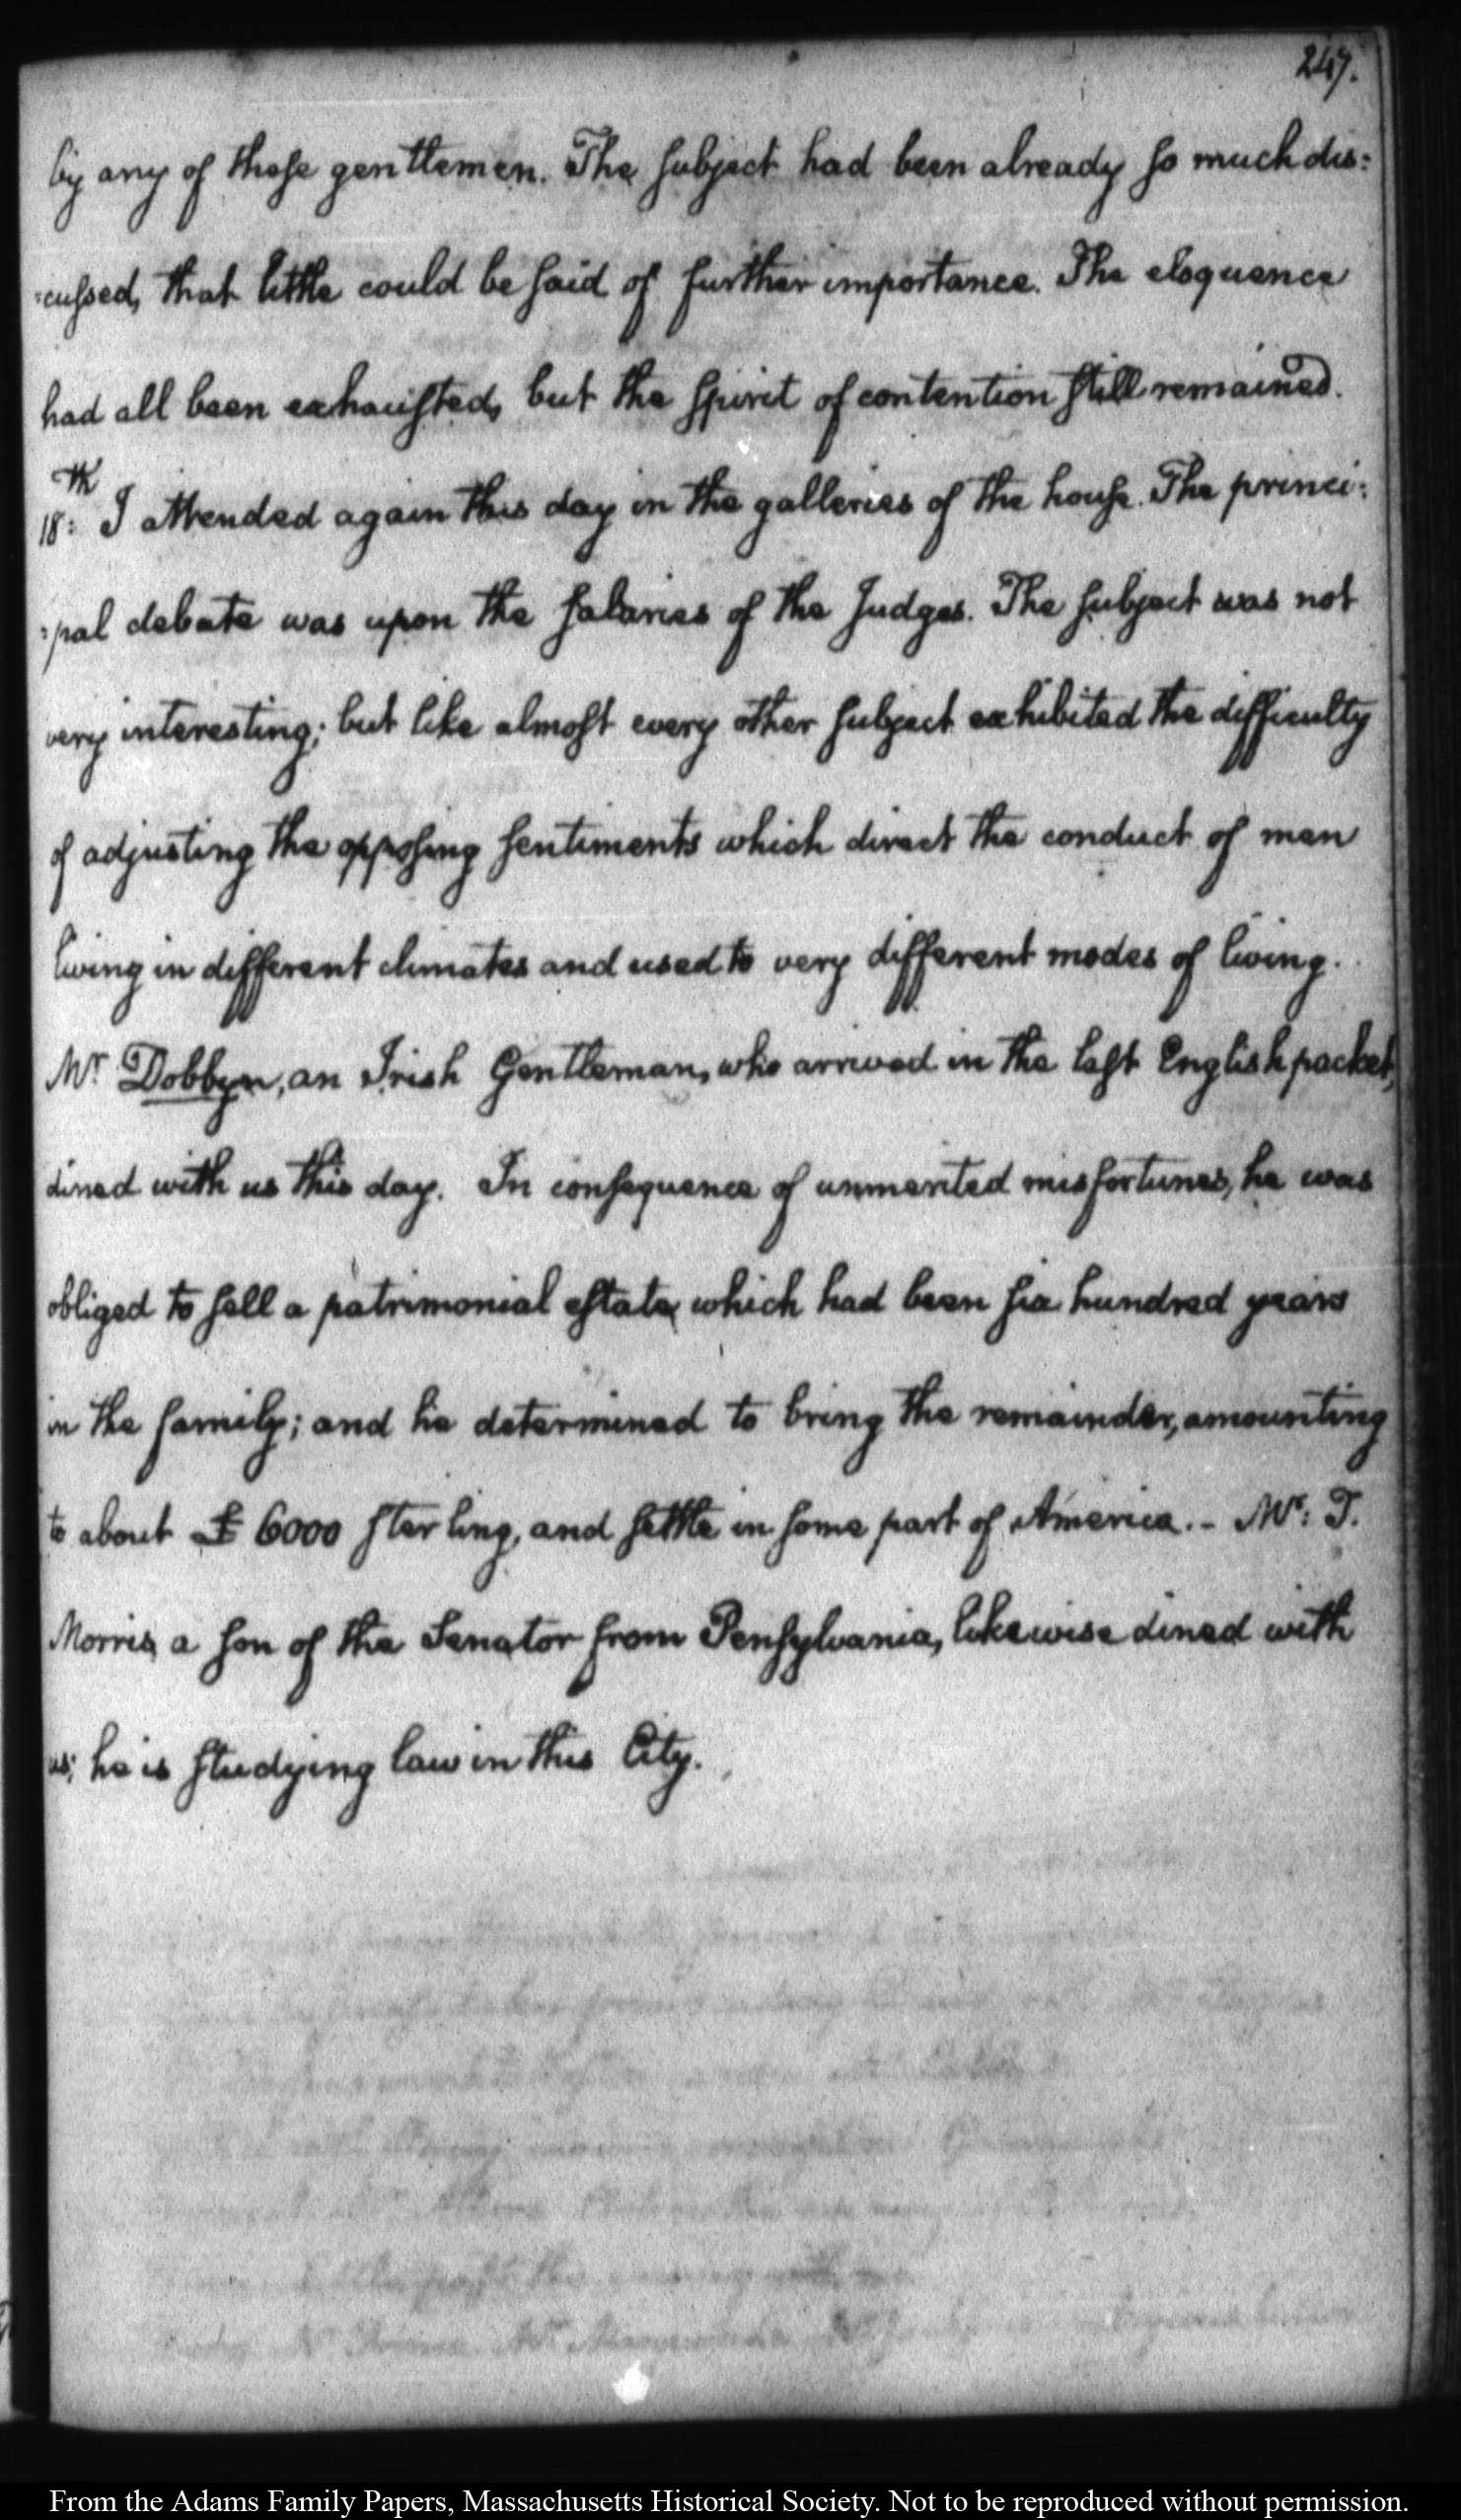 247.
by any of those gentlemen. The subject had been already so much dis:
:cussed, that little could be said of further importance. The eloquence
had all been exhausted, but the spirit of contention still remained.
18:th I attended again this day in the galleries of the house. The princi:
:pal debate was upon the salaries of the Judges. The subject was not
very interesting; but like almost every other subject exhibited the difficulty
of adjusting the opposing sentiments which direct the conduct of men
living in different climates and used to very different modes of living.
Mr Dobbyn, an Irish Gentleman, who arrived in the last English packet,
dined with us this day. In consequence of unmerited misfortunes, he was
obliged to sell a patrimonial estate, which had been six hundred years
in the family; and he determined to bring the remainder, amounting
to about £ 6000 sterling, and settle in some part of America.- Mr: T.
Morris, a son of the Senator from Pensylvania, likewise dined with
us; he is studying law in this City.
From the Adams Family Papers, Massachusetts Historical Society. Not to be reproduced without permission.